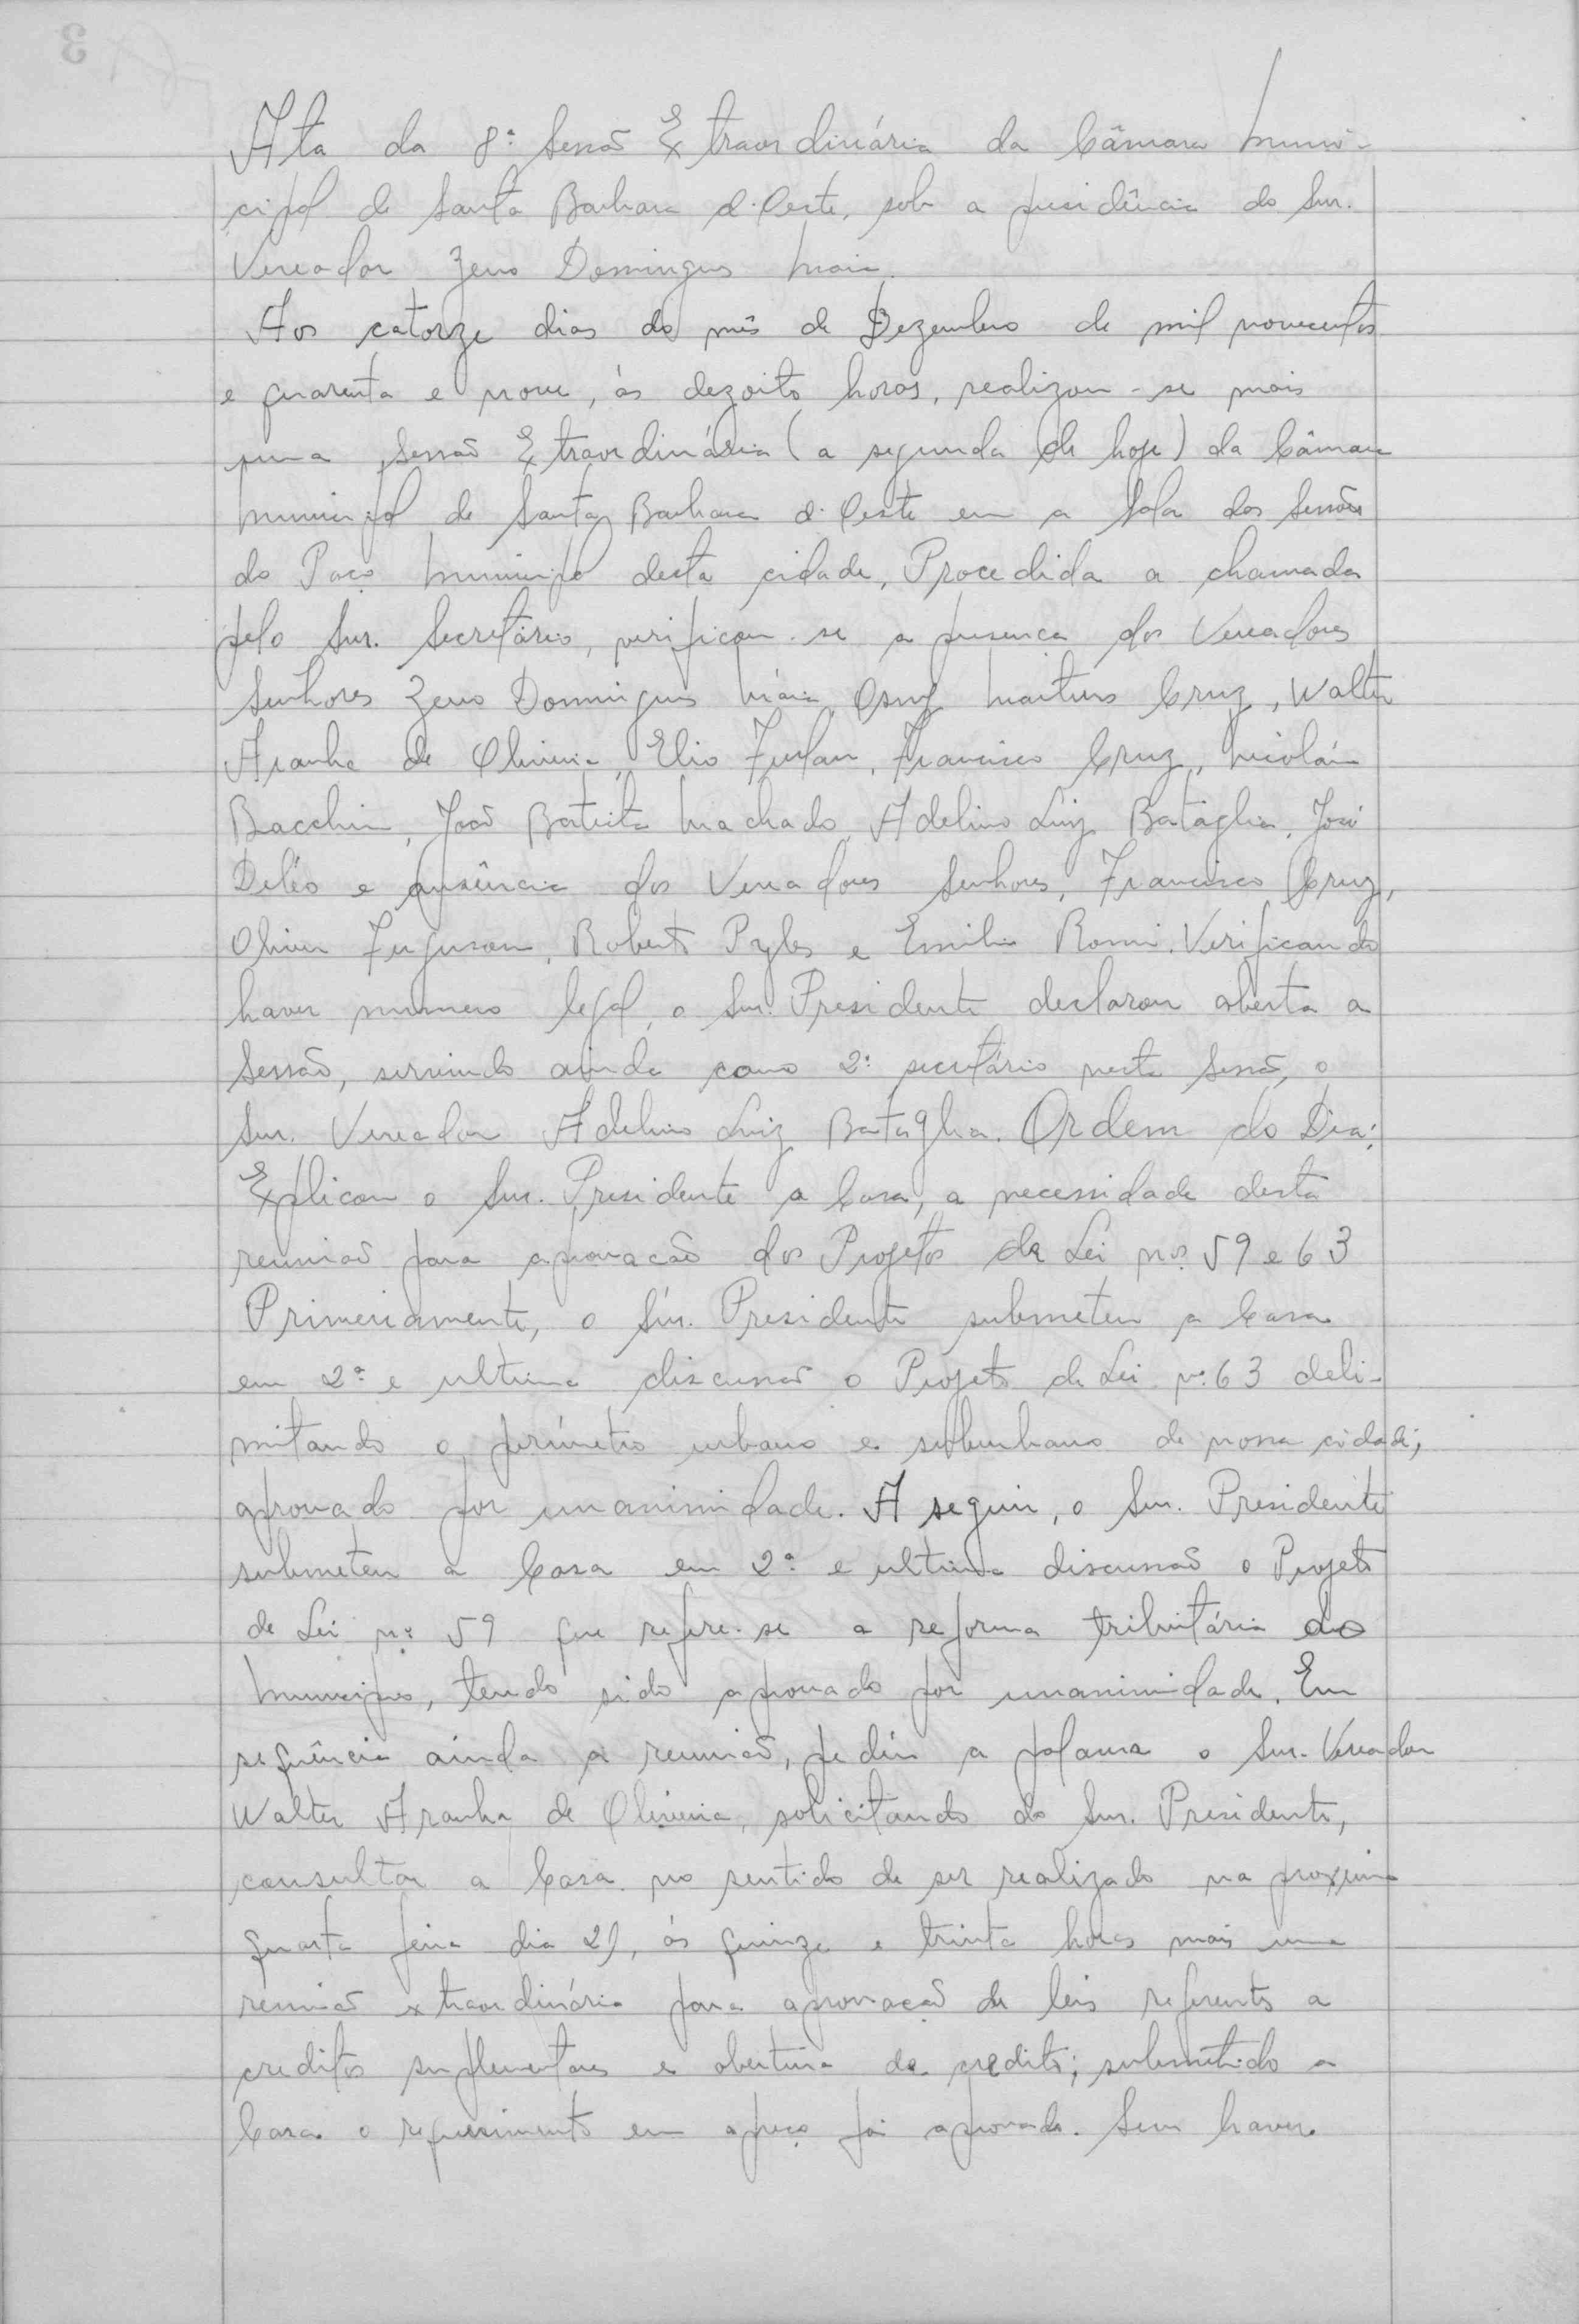 Ata da 8ª Sessão Extraordinária da Câmara Muni-
cipal de Santa Barbara d'Oeste, sob a presidência do Snr.
Vereador Zeno Domingues Maia.
Aos catorze dias do mês de Dezembro de mil novecentos
e quarenta e nove, às dezoito horas, realizou-se mais
uma Sessão Extraordinária (a segunda de hoje) da Câmara
Municipal de Santa Barbara d'Oeste em a Sala das Sessões
do Paço Municipal desta cidade, Procedida a chamada
pelo Snr. Secretário, verificou-se a presença dos Vereadores
Senhores Zeno Domingues Maia, Osny Martins Cruz, Walter
Aranha de Oliveira, Elio Furlan, Francisco Cruz, Nicoláu
Bacchin, João Batista Machado, Adelino Luiz Bataglia, José
Deléo e ausência dos Vereadores Senhores, Francisco Cruz,
Oliver Ferguson, Roberto Pyles e Emilio Romi. Verificando
haver numero legal, o Snr. Presidente declarou aberta a
Sessão, servindo ainda como 2º secretário nesta Sessão, o
Snr. Vereador Adelino Luiz Bataglia. Ordem do Dia:
Explicou o Snr. Presidente a Casa, a necessidade desta
reunião para aprovação dos Projetos de Lei nos. 59 e 63
Primeiramente, o Snr. Presidente submeteu a Casa
em 2ª e ultima discussão o Projeto de Lei nº 63 deli-
mitando o perímetro urbano e suburbano de nossa cidade;
aprovado por unanimidade. A seguir, o Snr. Presidente
submeteu a Casa em 2ª e ultima discussão o Projeto
de Lei nº 59 que refere-se a reforma tributária do
Municipio, tendo sido aprovado por unanimidade. Em
sequência ainda a reunião, pediu a palavra o Snr. Vereador
Walter Aranha de Oliveira, solicitando do Snr. Presidente,
consultar a Casa no sentido de ser realizado na proxima
quarta feira dia 21, às quinze e trinta horas mais uma
reunião extraordinária para aprovação de leis referentes a
creditos suplementares e abertura de credito; submetido a
Casa o requerimento em apreço foi aprovado. Sem haver